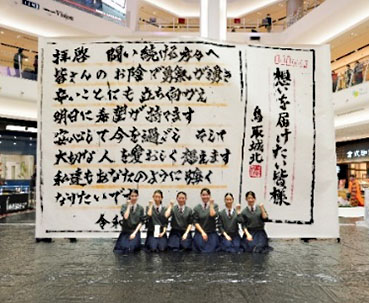 拝啓 闘い続ける方々へ
皆さんのお陰で勇気が湧き
辛いことにも立ち向かえ
明日に希望が持てます
安心して今を過ごし そして
大切な人を愛おしく想えます
私達もあなたのように強く
なりたいです
令和
鳥取城北
想いを届けたい皆様